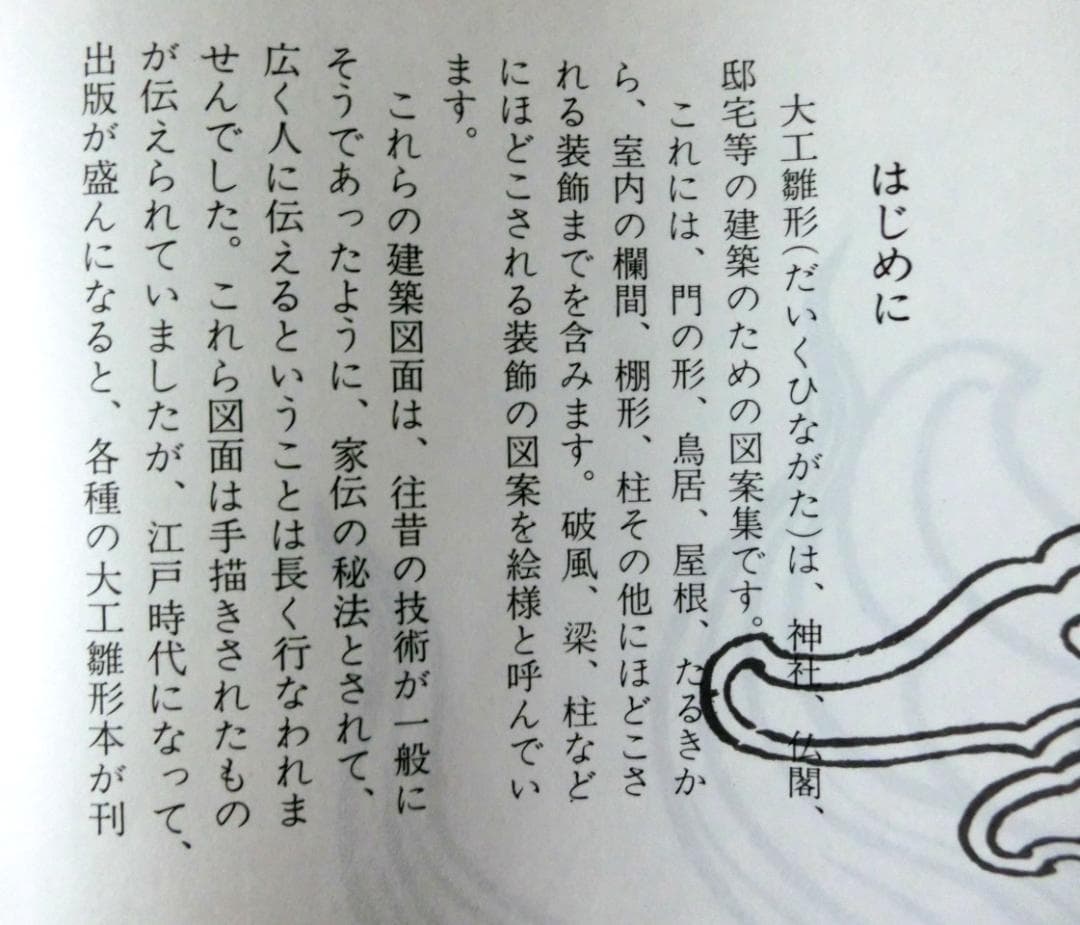 はじめに
大工雛形(だいくひながた)は、神社、仏閣、
邸宅等の建築のための図案集です。
これには、門の形、鳥居、屋根、たるきか
ら、室内の欄間、棚形、柱その他にほどこさ
れる装飾までを含みます。破風、梁、柱など
にほどこされる装飾の図案を絵様と呼んでい
ます。
これらの建築図面は、往昔の技術が一般に
そうであったように、家伝の秘法とされて、
広く人に伝えるということは長く行なわれま
せんでした。これら図面は手描きされたもの
が伝えられていましたが、江戸時代になって、
出版が盛んになると、各種の大工雛形本が刊